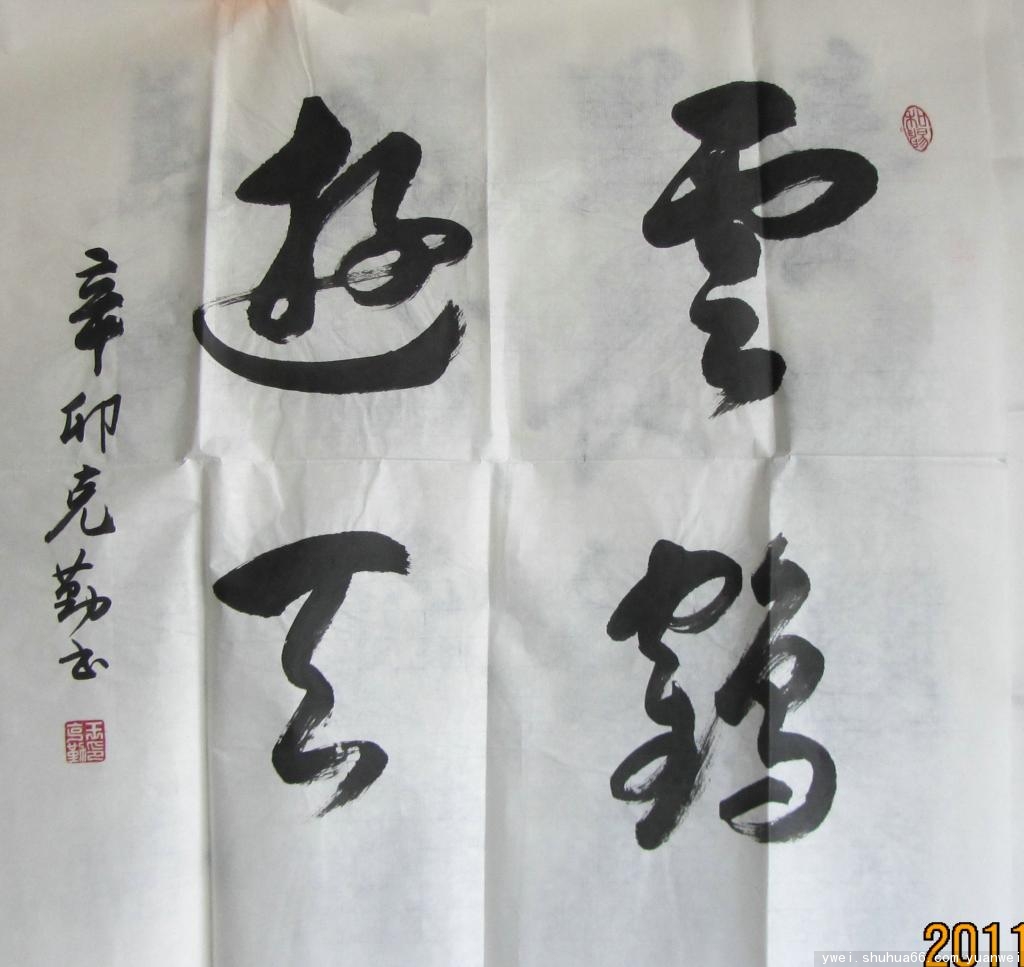 雲鶴
遊天
辛卯克勤书
2011
ywei.shuhua66.com/yuanwei